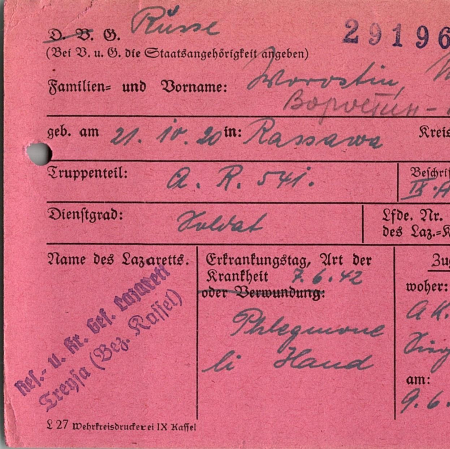 D. V. G. Russe 29196
(Bei V. u. G. die Staatsangehörigkeit angeben)
Familien- und Vorname: Worostin,
Воростин -
geb. am 21. 10. 20 in: Rassawa Kreis
Truppenteil: A. R. 541. Beschrif
IX. A
Dienstgrad: Soldat Lfde. Nr.
des Laz.-K
Name des Lazaretts. Erkrankungstag, Art der Zu
Krankheit 7. 6. 42 woher:
oder Verwundung: A K.
Phlegmone
li Hand am:
9. 6.
Res.- u. Kr. Gef. Lazarett
Treysa (Bez. Kassel)
L 27 Wehrkreisdruckerei IX Kassel